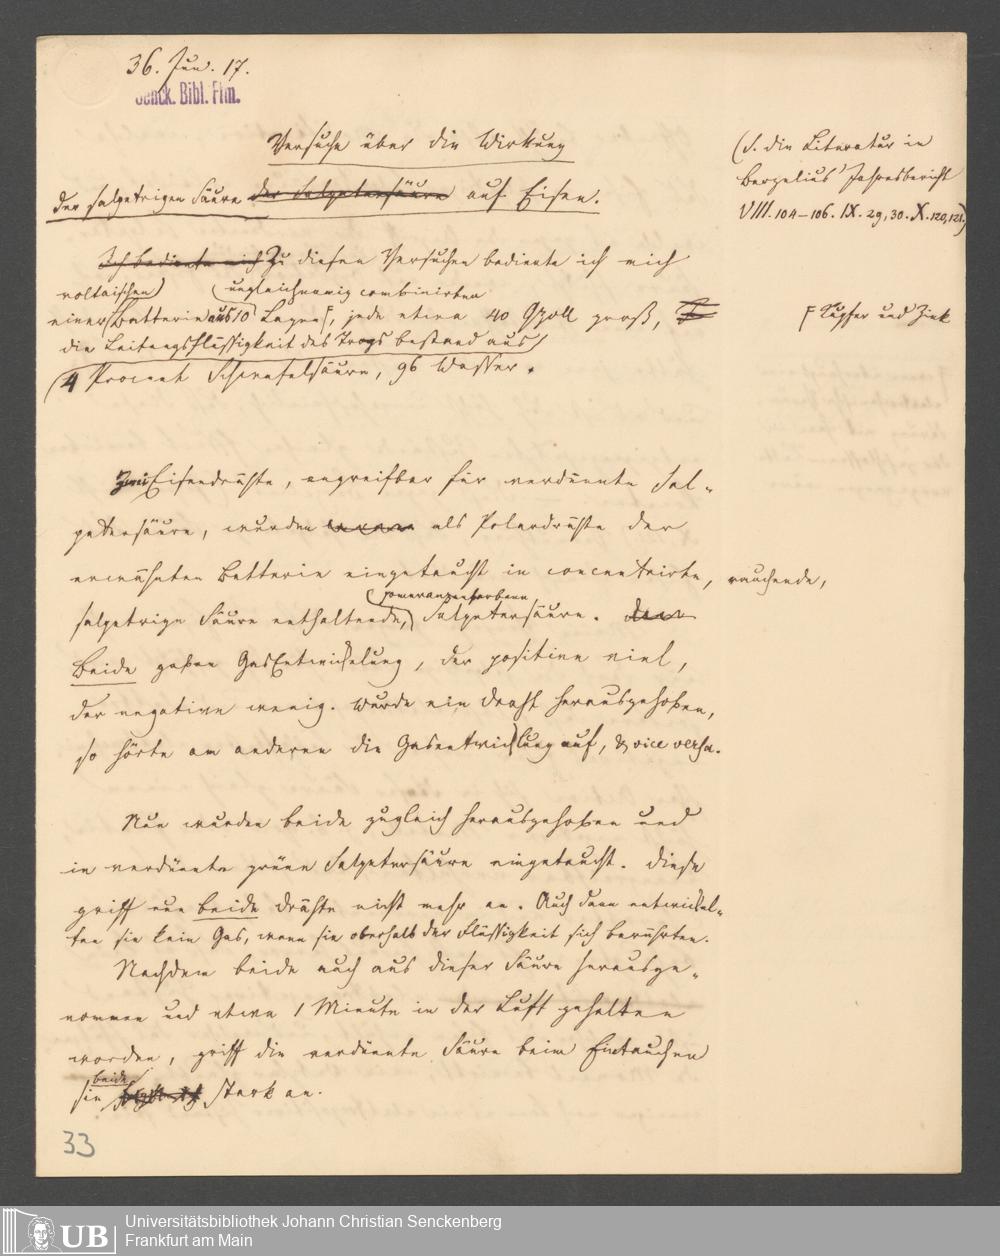 36. Jun. 17.
Senck. Bibl. Ffm.
Versuche über die Wirkung
der salpetrigen Säure der Salpetersäure auf Eisen.
(S. die Literatur in
Berzelius' Jahresbericht
VIII. 104-106. IX. 29, 30. X. 120, 121.)
Ich bediente mich Zu diesen Versuchen bediente ich mich
voltaischen ungleichnamig combinirten
einer Batterie aus 10 Lagen, jede etwa 40 Qzoll groß,
Kupfer und Zink
die Leitungsflüssigkeit des Trogs bestand aus
4 Procent Schwefelsäure, 96 Wasser.
Zwei Eisendrähte, angreifbar für verdünnte Sal-
petersäure, wurden als Polardrähte der
erwähnten Batterie eingetaucht in concentrirte, rauchende,
pomeranzenfarbene
salpetrige Säure enthaltende, Salpetersäure.
Beide gaben GasEntwickelung, der positive viel,
der negative wenig. Wurde ein Draht herausgehoben,
so hörte am anderen die Gasentwicklung auf, & vice versa.
Nun wurden beide zugleich herausgehoben und
in verdünnte grüne Salpetersäure eingetaucht. Diese
griff nun beide Drähte nicht mehr an. Auch dann entwickel-
ten sie kein Gas, wenn sie oberhalb der Flüssigkeit sich berührten.
Nachdem beide auch aus dieser Säure herausge-
nommen und etwa 1 Minute in der Luft gehalten
worden, griff die verdünnte Säure beim Eintauchen
beide
sie stark an.
33
UB
Universitätsbibliothek Johann Christian Senckenberg
Frankfurt am Main